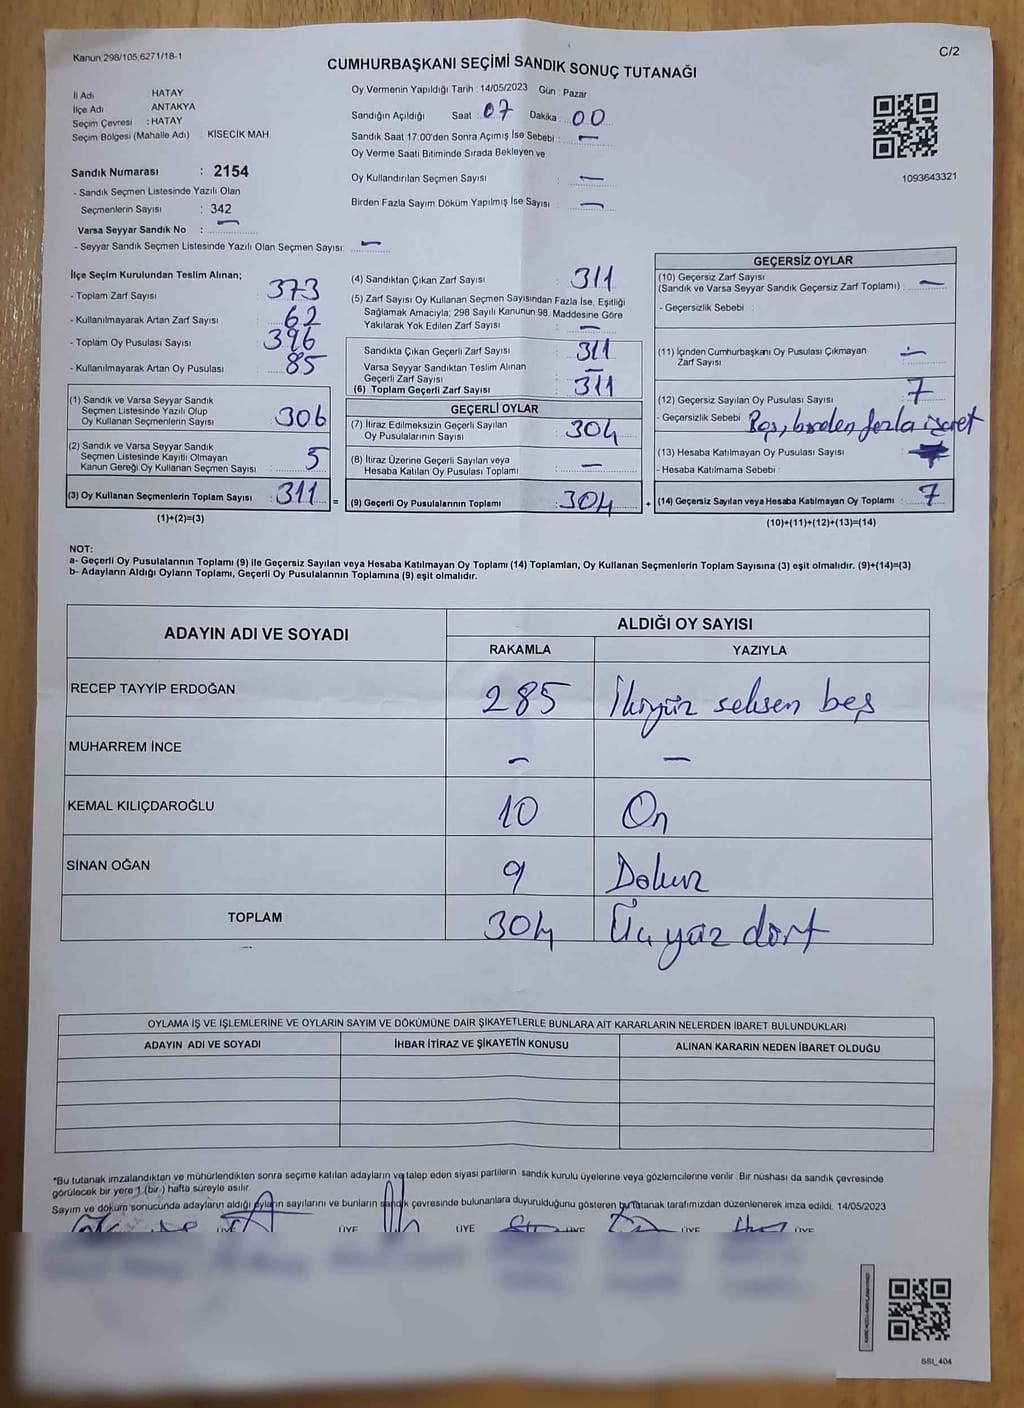 Kanun,298/105,6271/18-1
C/2
CUMHURBAŞKANI SEÇİMİ SANDIK SONUÇ TUTANAĞI
İl Adı HATAY
İlçe Adı ANTAKYA
Seçim Çevresi : HATAY
Seçim Bölgesi (Mahalle Adı) KİSECİK MAH.
Oy Vermenin Yapıldığı Tarih : 14/05/2023 Gün : Pazar
Sandığın Açıldığı Saat : 07 Dakika 00
Sandık Saat 17:00'den Sonra Açımış İse Sebebi : —
Oy Verme Saati Bitiminde Sırada Bekleyen ve
Oy Kullandırılan Seçmen Sayısı : —
Birden Fazla Sayım Döküm Yapılmış İse Sayısı —
1093643321
Sandık Numarası : 2154
- Sandık Seçmen Listesinde Yazılı Olan
Seçmenlerin Sayısı : 342
Varsa Seyyar Sandık No : —
- Seyyar Sandık Seçmen Listesinde Yazılı Olan Seçmen Sayısı: —
İlçe Seçim Kurulundan Teslim Alınan;
- Toplam Zarf Sayısı : 373
- Kullanılmayarak Artan Zarf Sayısı : 62
- Toplam Oy Pusulası Sayısı : 396
- Kullanılmayarak Artan Oy Pusulası : 85
(1) Sandık ve Varsa Seyyar Sandık
Seçmen Listesinde Yazılı Olup
Oy Kullanan Seçmenlerin Sayısı : 306
(2) Sandık ve Varsa Seyyar Sandık
Seçmen Listesinde Kayıtlı Olmayan
Kanun Gereği Oy Kullanan Seçmen Sayısı : 5
(3) Oy Kullanan Seçmenlerin Toplam Sayısı : 311 =
(1)+(2)=(3)
(4) Sandıktan Çıkan Zarf Sayısı : 311
(5) Zarf Sayısı Oy Kullanan Seçmen Sayısından Fazla İse, Eşitliği
Sağlamak Amacıyla; 298 Sayılı Kanunun 98. Maddesine Göre
Yakılarak Yok Edilen Zarf Sayısı : —
Sandıkta Çıkan Geçerli Zarf Sayısı : 311
Varsa Seyyar Sandıktan Teslim Alınan
Geçerli Zarf Sayısı : —
(6) Toplam Geçerli Zarf Sayısı : 311
GEÇERLİ OYLAR
(7) İtiraz Edilmeksizin Geçerli Sayılan
Oy Pusulalarının Sayısı : 304
(8) İtiraz Üzerine Geçerli Sayılan veya
Hesaba Katılan Oy Pusulası Toplamı : —
(9) Geçerli Oy Pusulalarının Toplamı : 304 +
GEÇERSİZ OYLAR
(10) Geçersiz Zarf Sayısı
(Sandık ve Varsa Seyyar Sandık Geçersiz Zarf Toplamı) : —
- Geçersizlik Sebebi :
(11) İçinden Cumhurbaşkanı Oy Pusulası Çıkmayan
Zarf Sayısı : —
(12) Geçersiz Sayılan Oy Pusulası Sayısı : 7
- Geçersizlik Sebebi : Boş, birden fazla işaret
(13) Hesaba Katılmayan Oy Pusulası Sayısı :
- Hesaba Katılmama Sebebi :
(14) Geçersiz Sayılan veya Hesaba Katılmayan Oy Toplamı : 7
(10)+(11)+(12)+(13)=(14)
NOT:
a- Geçerli Oy Pusulalarının Toplamı (9) ile Geçersiz Sayılan veya Hesaba Katılmayan Oy Toplamı (14) Toplamları, Oy Kullanan Seçmenlerin Toplam Sayısına (3) eşit olmalıdır. (9)+(14)=(3)
b- Adayların Aldığı Oyların Toplamı, Geçerli Oy Pusulalarının Toplamına (9) eşit olmalıdır.
ADAYIN ADI VE SOYADI ALDIĞI OY SAYISI
RAKAMLA YAZIYLA
RECEP TAYYİP ERDOĞAN 285 İkiyüz seksen beş
MUHARREM İNCE — —
KEMAL KILIÇDAROĞLU 10 On
SİNAN OĞAN 9 Dokuz
TOPLAM 304 Üç yüz dört
OYLAMA İŞ VE İŞLEMLERİNE VE OYLARIN SAYIM VE DÖKÜMÜNE DAİR ŞİKAYETLERLE BUNLARA AİT KARARLARIN NELERDEN İBARET BULUNDUKLARI
ADAYIN ADI VE SOYADI İHBAR İTİRAZ VE ŞİKAYETİN KONUSU ALINAN KARARIN NEDEN İBARET OLDUĞU
*Bu tutanak imzalandıktan ve mühürlendikten sonra seçime katılan adayların ve talep eden siyasi partilerin sandık kurulu üyelerine veya gözlemcilerine verilir. Bir nüshası da sandık çevresinde
görülecek bir yere 1 (bir) hafta süreyle asılır.
Sayım ve döküm sonucunda adayların aldığı oyların sayılarını ve bunların sandık çevresinde bulunanlara duyurulduğunu gösteren bu tutanak tarafımızdan düzenlenerek imza edildi. 14/05/2023
ÜYE ÜYE ÜYE ÜYE ÜYE ÜYE
SSI_404